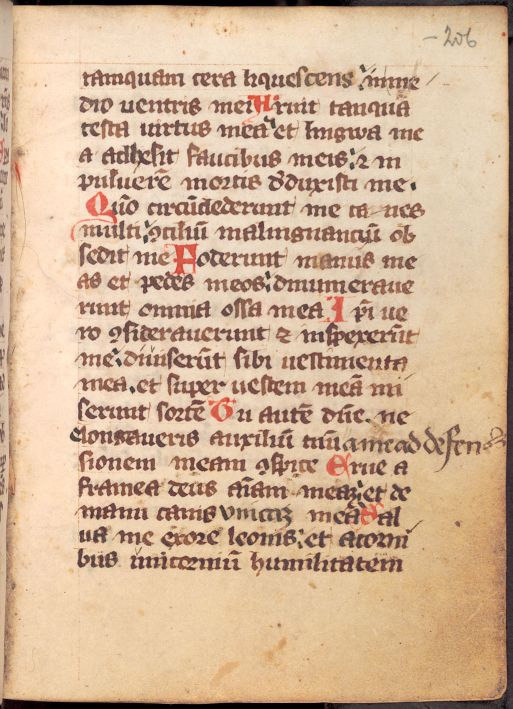 -206
tamquam cera liquescens in me
dio ventris mei Aruit tanquā
testa uirtus mea et lingwa me
a adhesit faucibus meis ⁊ in
puluerē mortis deduxisti me.
Qūo circūdederunt me canes
multi ꝯciliū malingnanciū ob
sedit me Foderunt manus me
as et pedes meos dinumeraue
runt omnia ossa mea Ip̄i ue
ro ꝯsiderauerunt ⁊ inspexerūt
me diuiserūt sibi uestimenta
mea. et super uestem meā mi
serunt sortē Tu autē dn̄e. ne
elongaueris auxiliū tuū a me ad defen
sionem meam ꝯspice Erue a
framea deus aīam meā et de
manu canis vnicā meā Sal
ua me exore leonis et acorni
bus unicorniū humilitatem